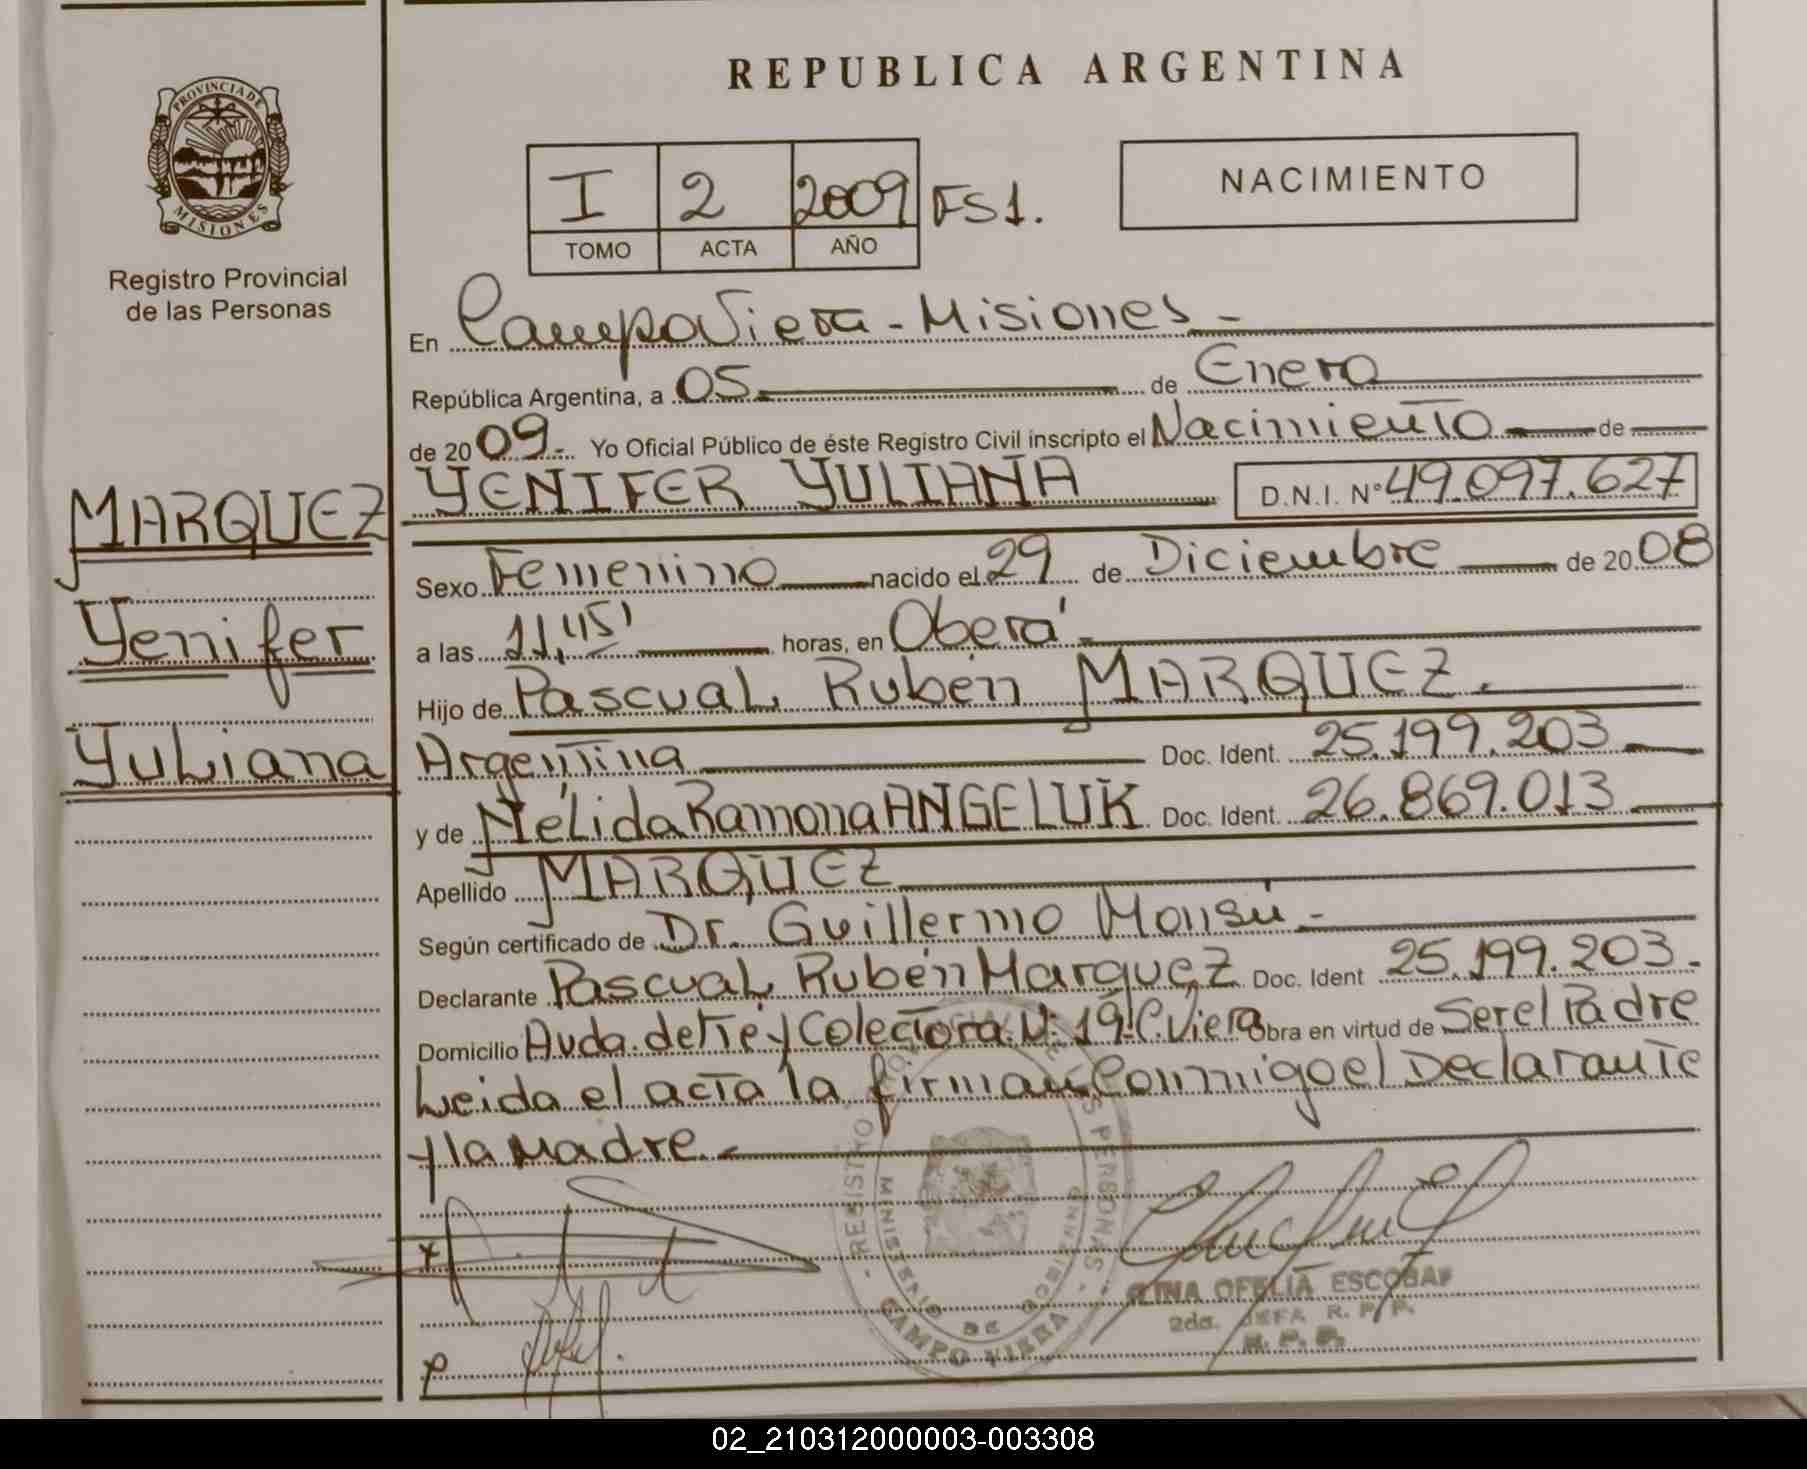 REPUBLICA ARGENTINA
PROVINCIA DE
MISIONES
Registro Provincial
de las Personas
I 2 2009 FS1.
TOMO ACTA AÑO
NACIMIENTO
En Campo Viera - Misiones -
República Argentina, a 05 de Enero
de 2009.- Yo Oficial Público de éste Registro Civil inscripto el Nacimiento de
YENIFER YULIANA D.N.I. Nº 49.097.627
MARQUEZ
Yenifer
Yuliana
Sexo Femenino nacido el 29 de Diciembre de 2008
a las 11,45' horas, en Oberá -
Hijo de Pascual Rubén MARQUEZ.
Argentina Doc. Ident. 25.199.203
y de Nélida Ramona ANGELUK Doc. Ident. 26.869.013
Apellido MARQUEZ
Según certificado de Dr. Guillermo Monsú -
Declarante Pascual Rubén Marquez Doc. Ident 25.199.203.
Domicilio Avda. del Té y Colectora N: 19-C. Viera Obra en virtud de Ser el Padre
Leida el acta la firman Conmigo el Declarante
y la Madre.-
REGISTRO PERSONAS
MINISTERIO DE GOBIERNO
CAMPO VIERA
OFELIA ESCOBAR
2da. JEFA R. P. P.
R. P. P.
02_210312000003-003308